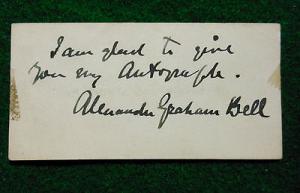 I am glad to give
you my Autograph.
Alexander Graham Bell